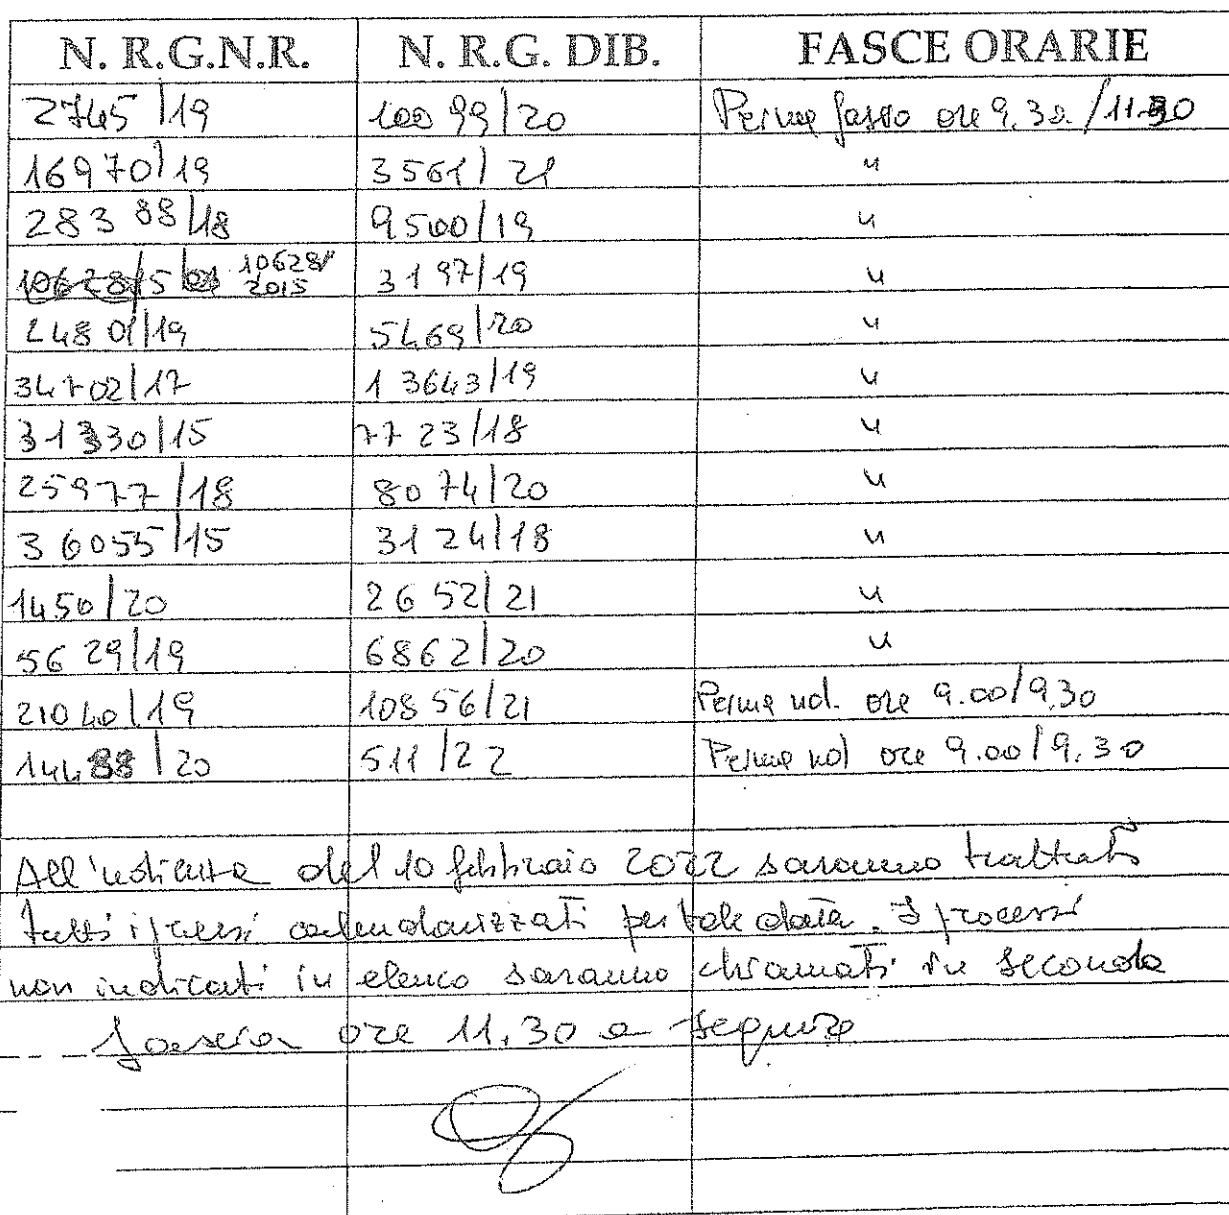 N. R.G.N.R. N. R.G. DIB. FASCE ORARIE
2745/19 10099/20 Prima fascia ore 9,30/11.30
16970/19 3561/21 "
28388/18 9500/19 "
10628/15 10628/2015 3197/19 "
24801/19 5469/20 "
34702/17 13643/19 "
31330/15 7723/18 "
25977/18 8074/20 "
36055/15 3124/18 "
1450/20 2652/21 "
5629/19 6862/20 "
21040/19 10856/21 Prima ud. ore 9.00/9,30
14488/20 511/22 Prima ud ore 9.00/9.30
All'udienza del 10 febbraio 2022 saranno trattati
tutti i processi calendarizzati per tale data. I processi
non indicati in elenco saranno chiamati in seconda
fascia ore 11,30 a seguire